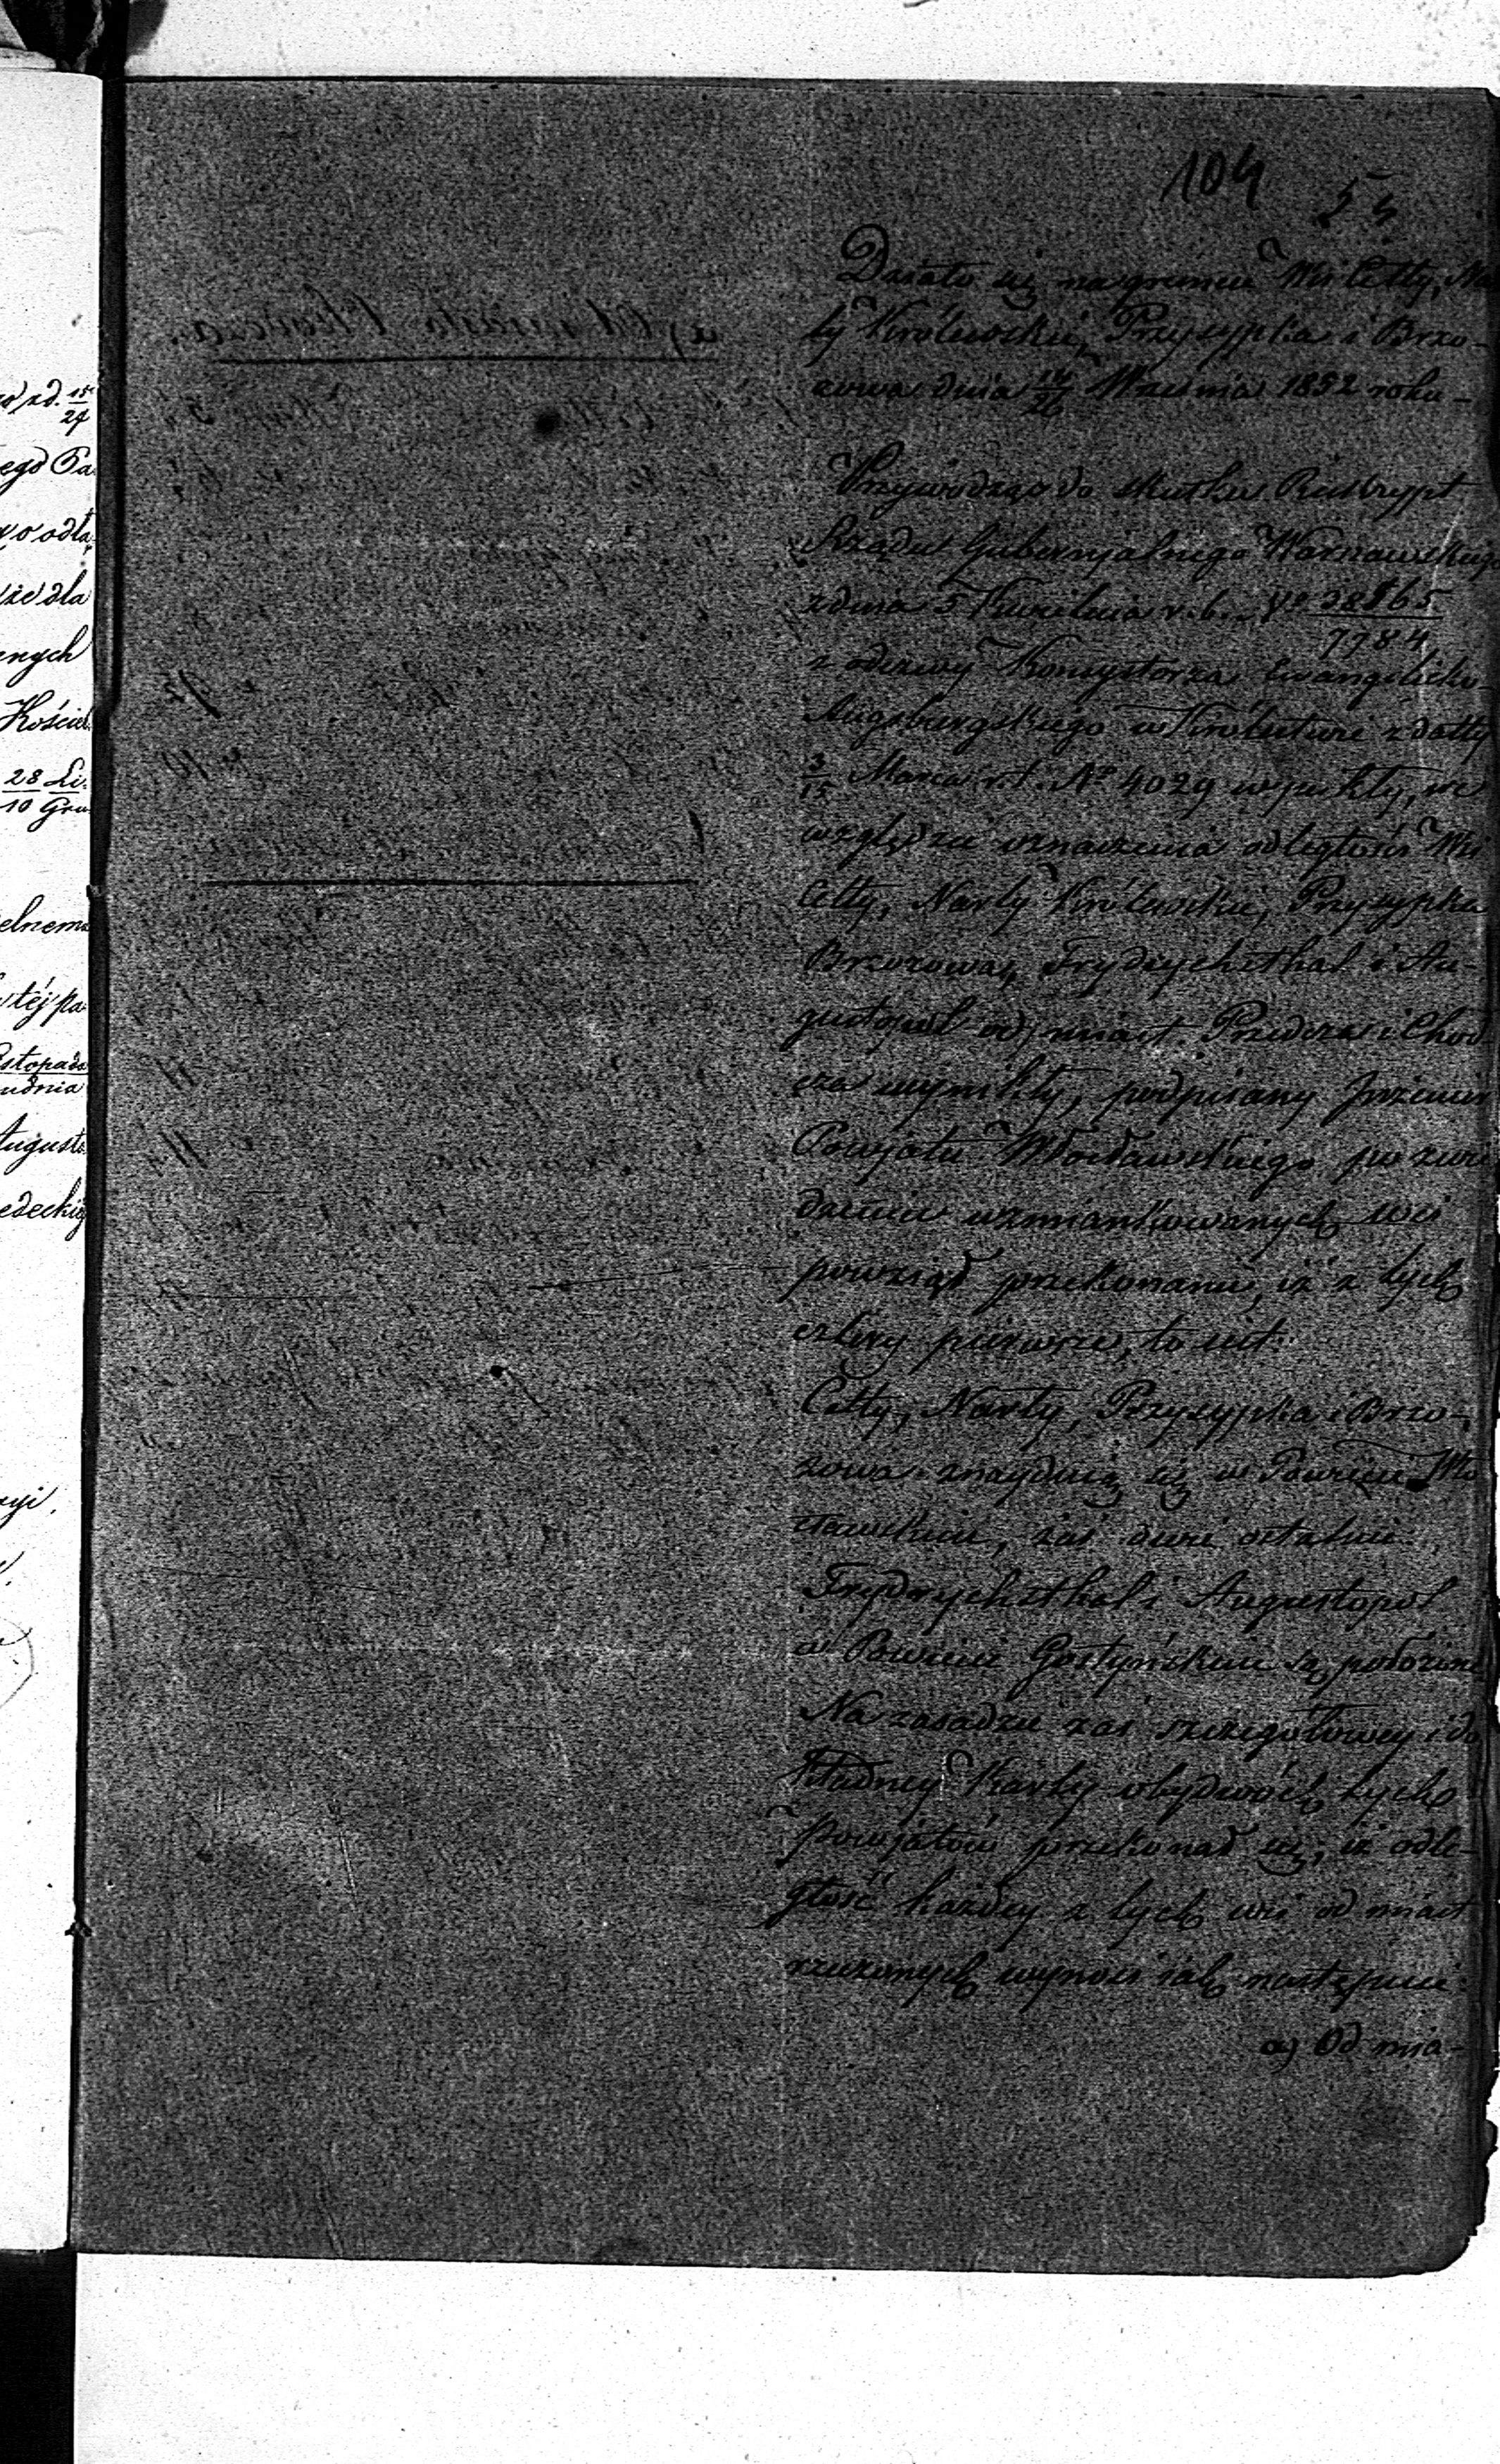 104 54
Działo się na gruncie Wsi Cetty, Nar
ty Królewskie, Przysypka i Brzo-
zowa dnia 14/26 Września 1852 roku -
Przywodząc do skutku Reskrypt
Rządu Gubernjalnego Warszawskiego
z dnia 5 Kwietnia r. b. No 32865/7784
z odezwy Konsystorza Ewangelicko-
Augsburgskiego w Królestwie z datty
3/15 Marca r. b. No 4029 wynikły, we
względzie oznaczenia odległości Wsi
Cetty, Narty Królewskie, Przysypka
Brzozowa, Frydrychsthal i Au-
gustopol od miast Przedcza i Chod-
cza wynikły, podpisany Jeziomer
Powjatu Włocławskiego po zwie
dzeniu wzmiankowanych wsi
powziął przekonanie, iż z tych
cztery pierwsze, to jest:
Cetty, Narty, Przysypka i Brzo-
zowa znajdują się w Powiecie Wło
cławskim, zaś dwie ostatnie
Frydrychsthal i Augustopol
w Powiecie Gostyńskim są położone
Na zasadzie zaś szczegółowey i do
kładney Karty obydwóch tych
Powjatów przekonał się, iż odle-
głość każdey z tych wsi od miast
rzeczonych wynosi jak następuie:
a) Od mia-
15/24
ego Pa
odłą
że dla
nych
Kościel
28 Li.
10 Gru
elnemu
téj pa
istopada
udnia
August
edeckiej